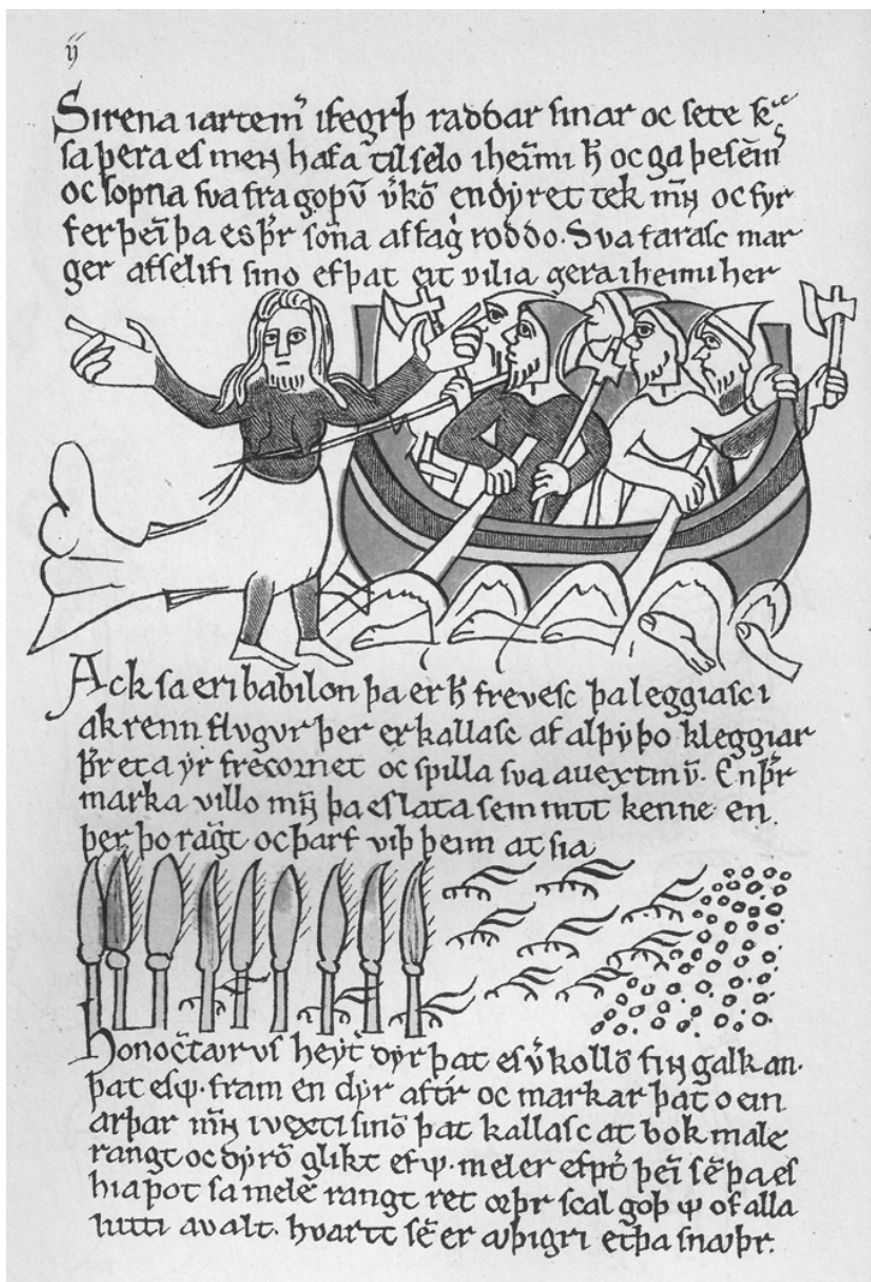 ij
Sirena iartem̄ ifegrþ raddar sinar oc sete k̄
sa þera es meɴ hafa til sælo iheīmi h̄ oc ga þesēm
oc sopna sva fra goþv̄ v̓kō en dẏret tek m̄ɴ oc fyr
fer þeī þa es þ̄r sōna af fag̓ roddo. Sva farasc mar
ger af sęlifi sino ef þat eit vilia gera iheimi her
Ack sa er i babilon þa er h̄ frevesc þa leggiasc i
ak renn flugur þer er kallasc af alþẏþo kleggiar
þ̄r eta ẏr frecornet oc spilla sva auextinū. En þ̄r
marka villo m̄ɴ þa es lata sem rutt kenne en
þer þo raḡt oc þarf viþ þeim at sia
honoc̄taurus heẏt̓ dẏr þat es v̓ kollō fiɴ galkan.
þat es ψ. fram en dẏr aftr̓ oc markar þat̄ o ein
arþar m̄ɴ i vęxti sinō þat kallasc at bok male
rangt oc dẏrō glikt ef ψ. meler efþt̓ þeī sē þa es
hia þot sa melē rangt ret œþr scal goþ ψ of alla
lutti avalt. hvartt sē er aþigri etþa snaþr.